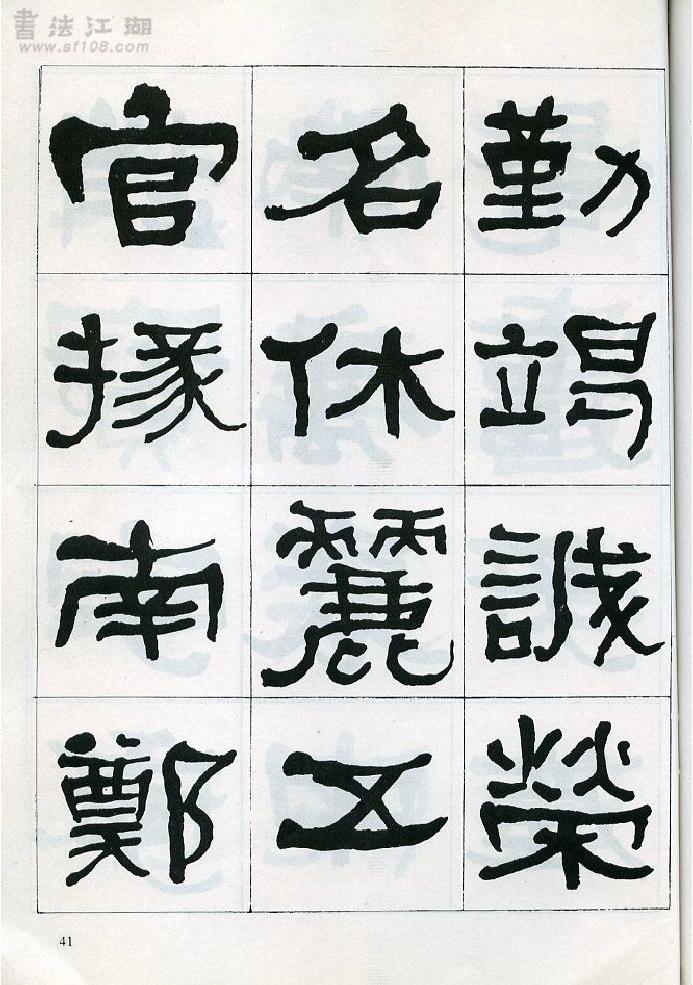 書法江湖
www.sf108.com
勤竭誠榮
名休麗五
官掾南鄭
41